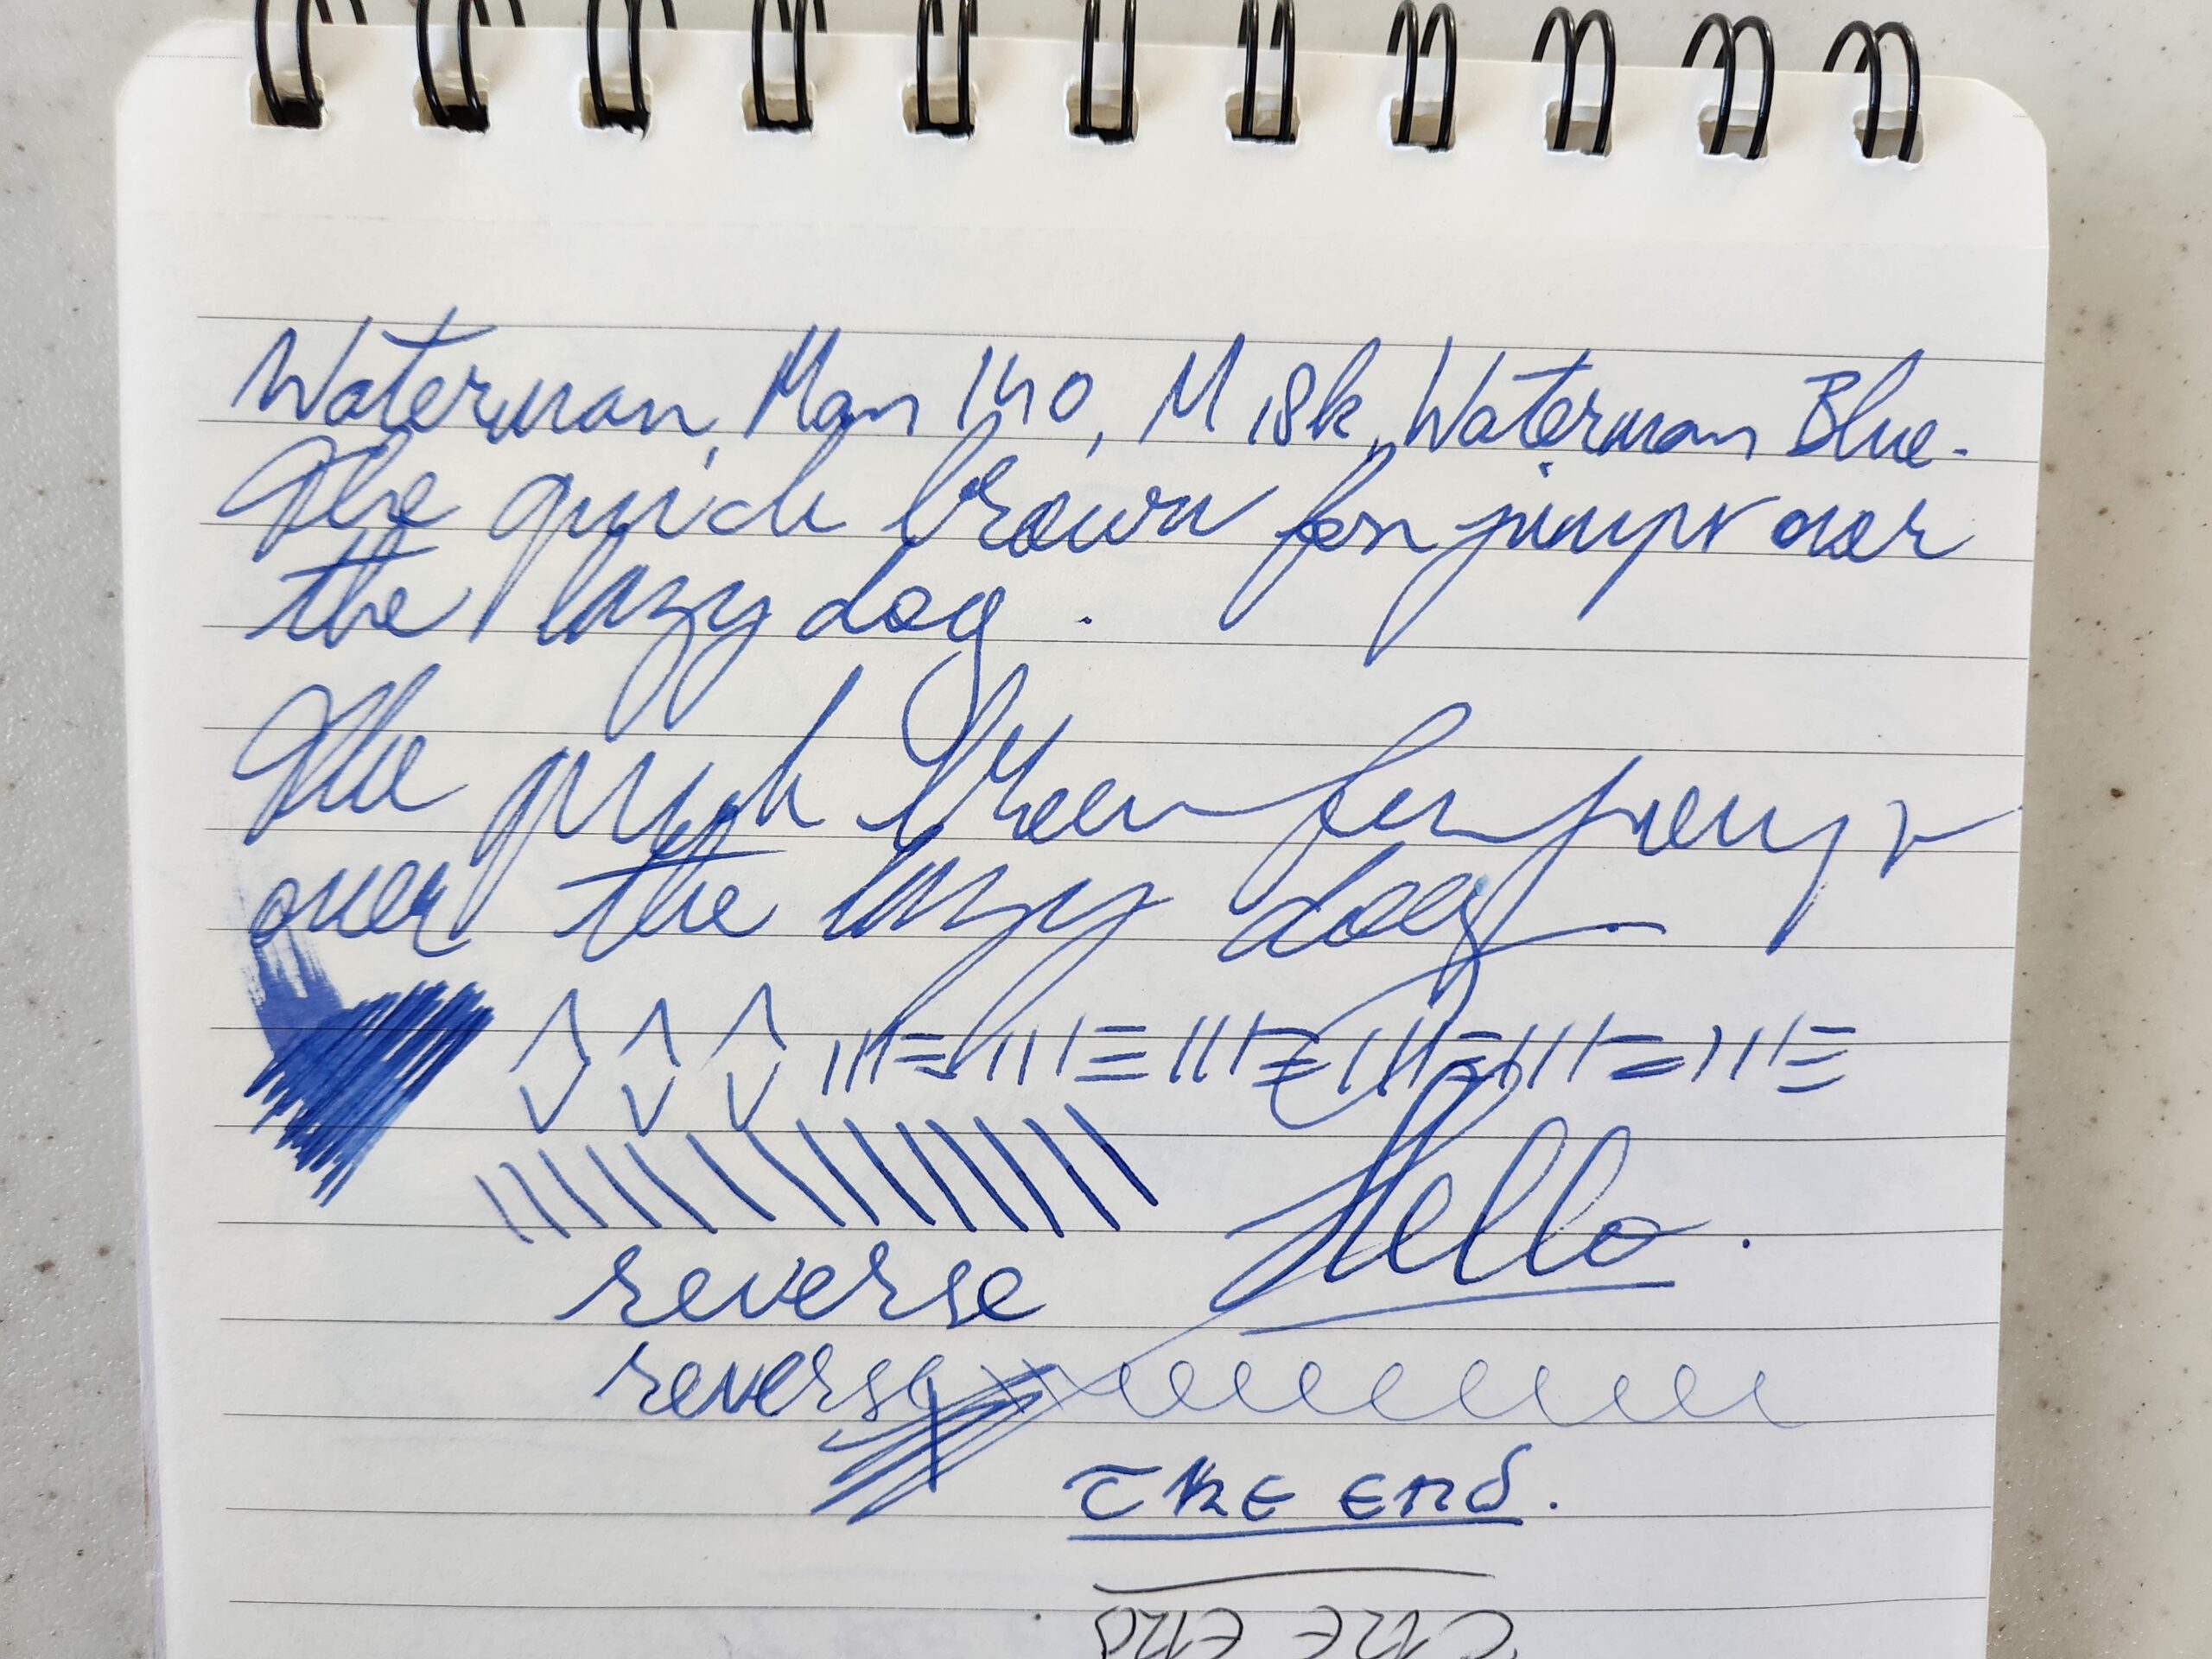 Waterman, Man 140, M 18k, Waterman Blue.
The quick brown fox jumps over
the lazy dog.
The quick brown fox jumps
over the lazy dog.
Hello.
reverse
reverse
THE END.
THE END